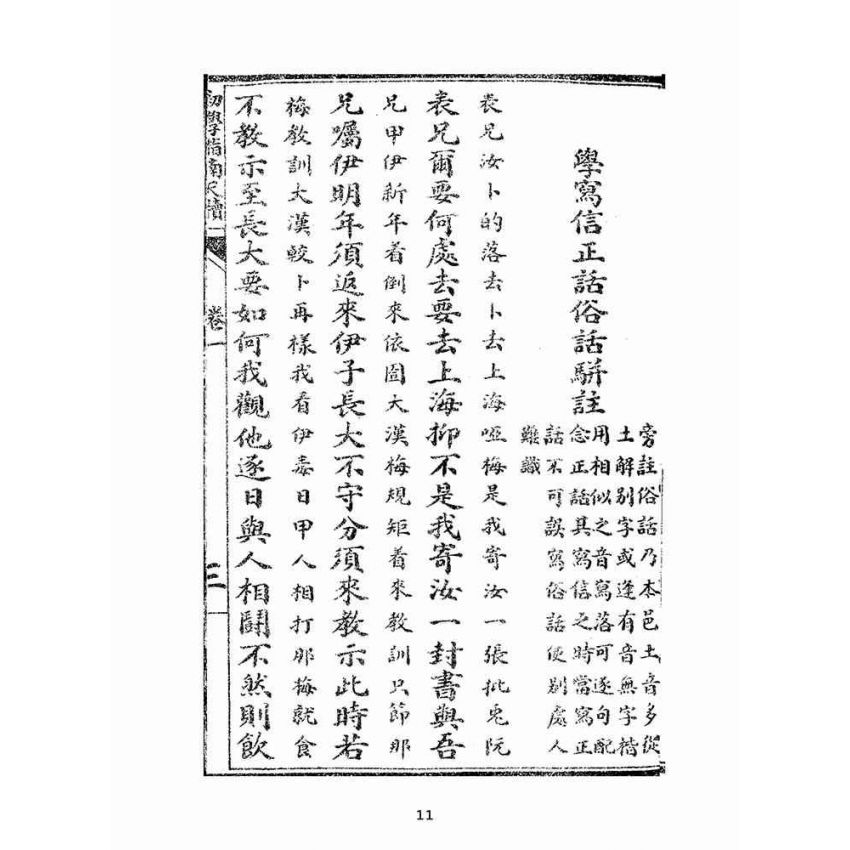 學寫信正話俗話駢註
旁註俗話乃本邑土音多從
土解別字或逢有音無字搭
用相似之音寫落可逐句配
念正話其寫信之時當寫正
話不可誤寫俗話使別處人
難識
表兄汝卜的落去卜去上海啞梅是我寄汝一張批兎阮
表兄爾要何處去要去上海抑不是我寄汝一封書與吾
兄甲伊新年着倒來依囝大漢梅規矩着來教訓只節那
兄囑伊明年須返來伊子長大不守分須來教示此時若
梅教訓大漢較卜再樣我看伊毒日甲人相打那梅就食
不教示至長大要如何我觀他逐日與人相鬪不然則飲
初學指南尺牘
卷一
三
11